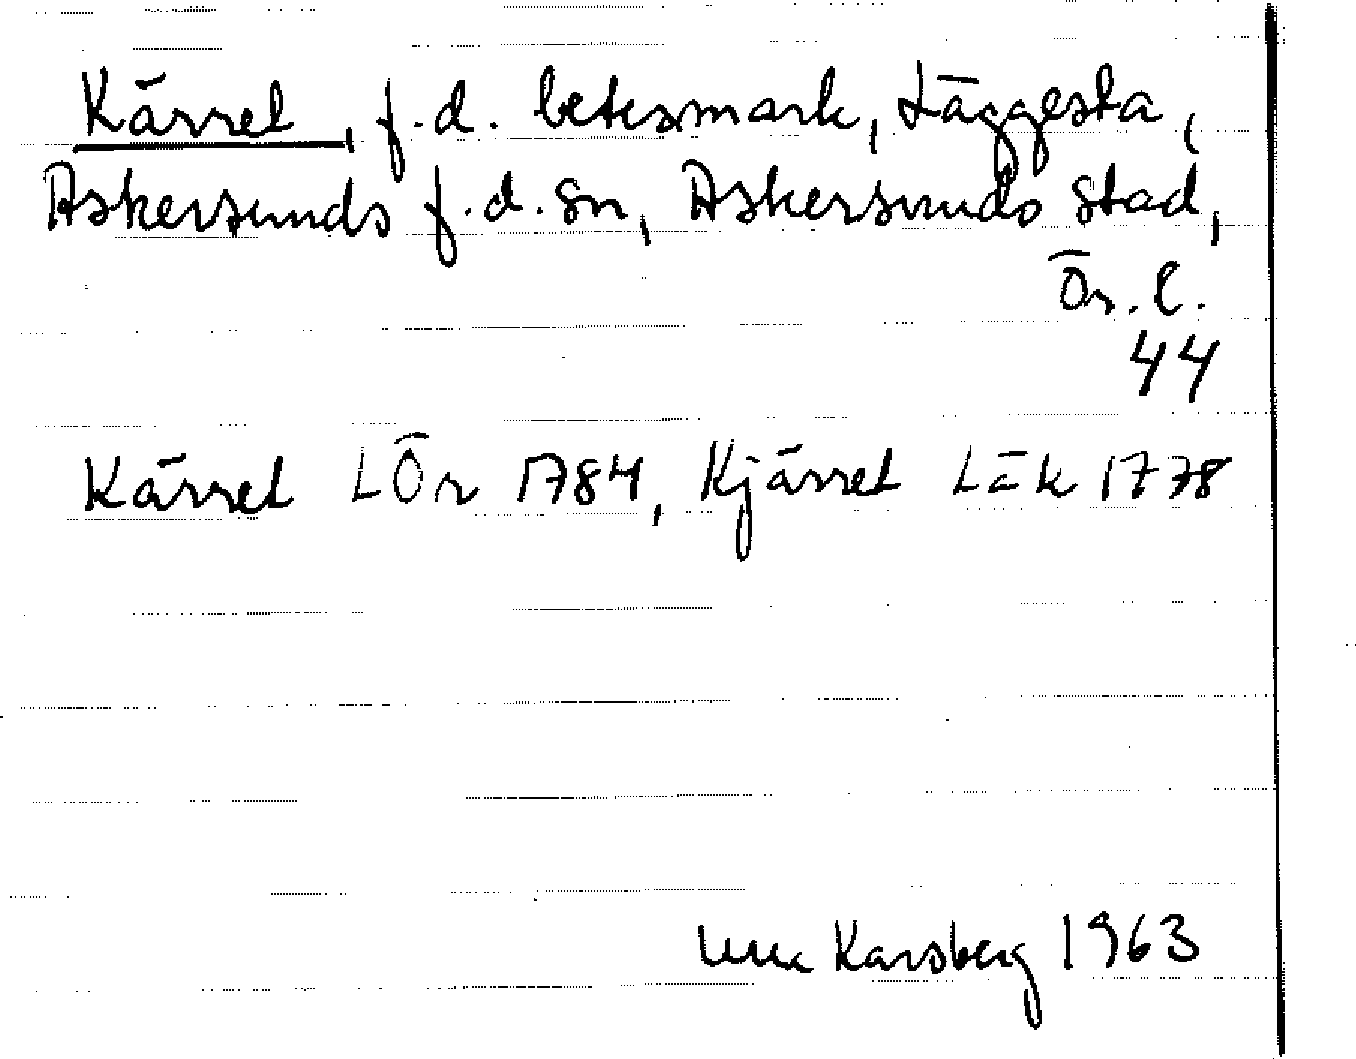 Kärret, f.d. betesmark, Läggesta,
Askersunds f.d. sn, Askersunds stad,
Ör. l.
44
Kärret LÖr 1784, Kjärret Läk 1778
Karsberg 1963